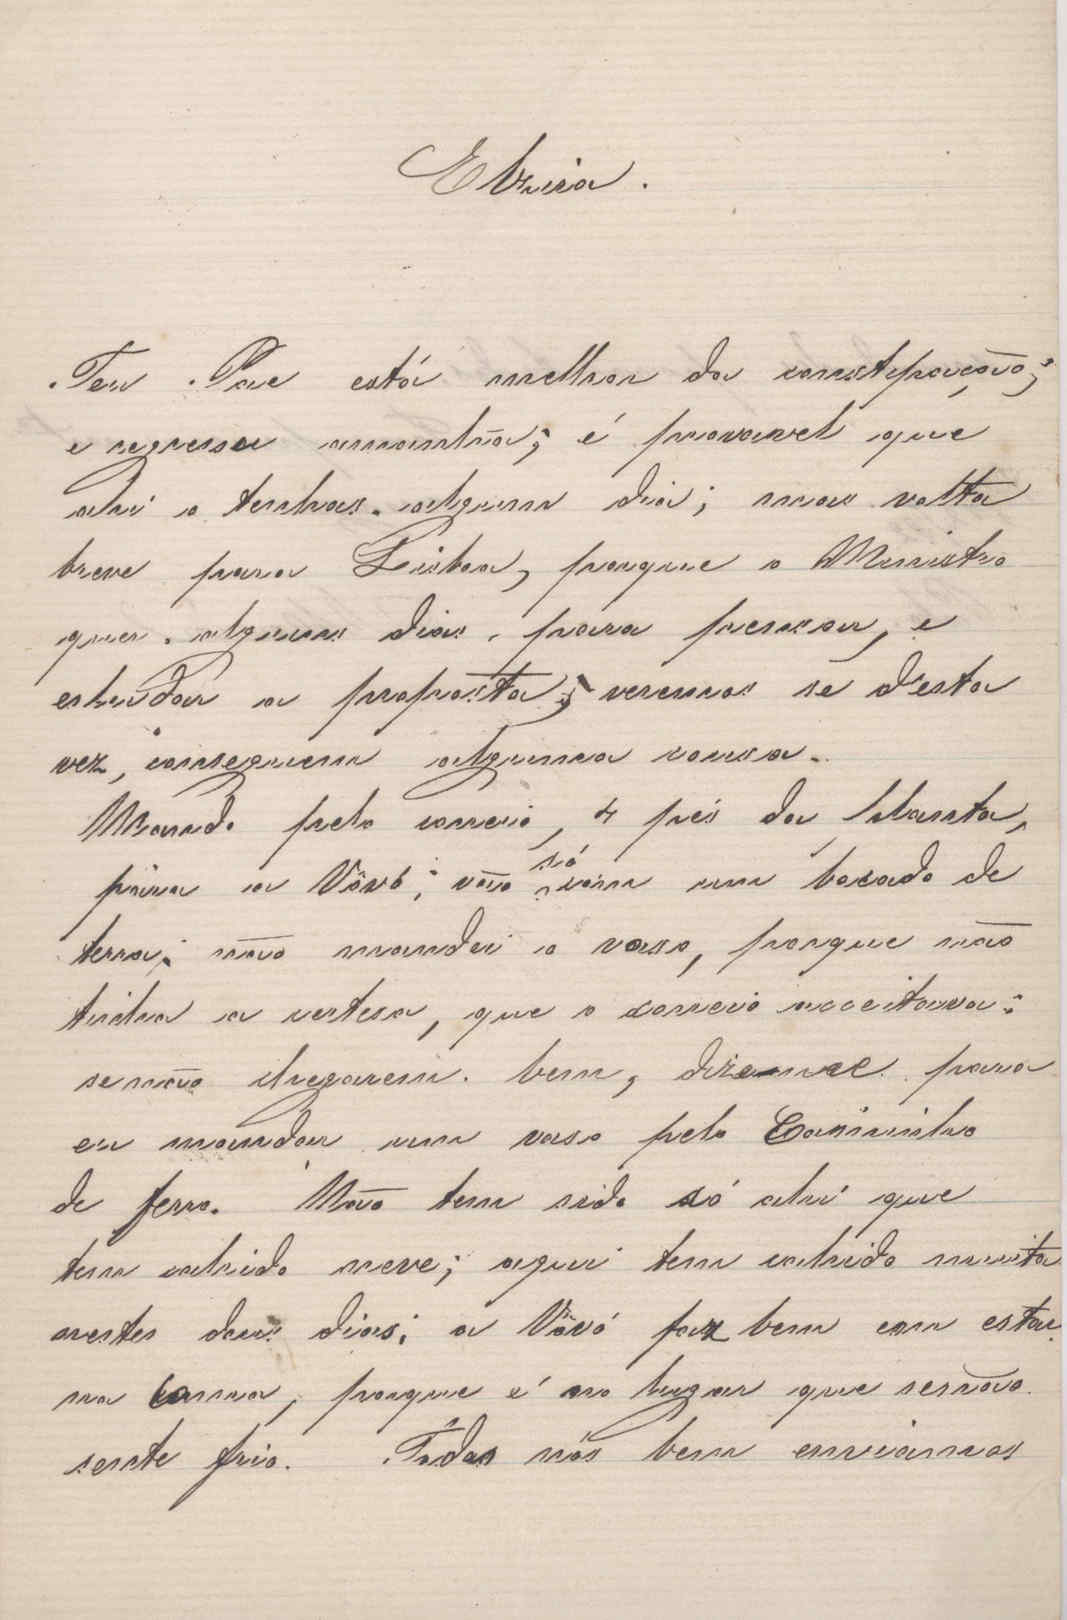 Elzira.
Teu Pae está melhor da constipação;
e regressa amanhã; é provavel que
ahi o tenhas algum dia; mas volta
breve para Lisboa, porque o Ministro
quer alguns dias, para pensar, e
estudar a proposta; veremos se d'esta
vez, conseguem alguma cousa.
Mando pelo correio, 4 pés da planta,
para a Vóvó; vão só com um bocado de
terra; não mandei o vaso, porque não
tinha a certesa, que o correio acceitava:
se não chegarem bem, dize-me para
eu mandar um vaso pelo Caminho
de ferro. Não tem sido só ahi que
tem cahido neve; aqui tem cahido muita
nestes dous dias; a Vóvó faz bem em estar
na cama, porque é no lugar que se não
sente frio. Todos nós bem enviamos